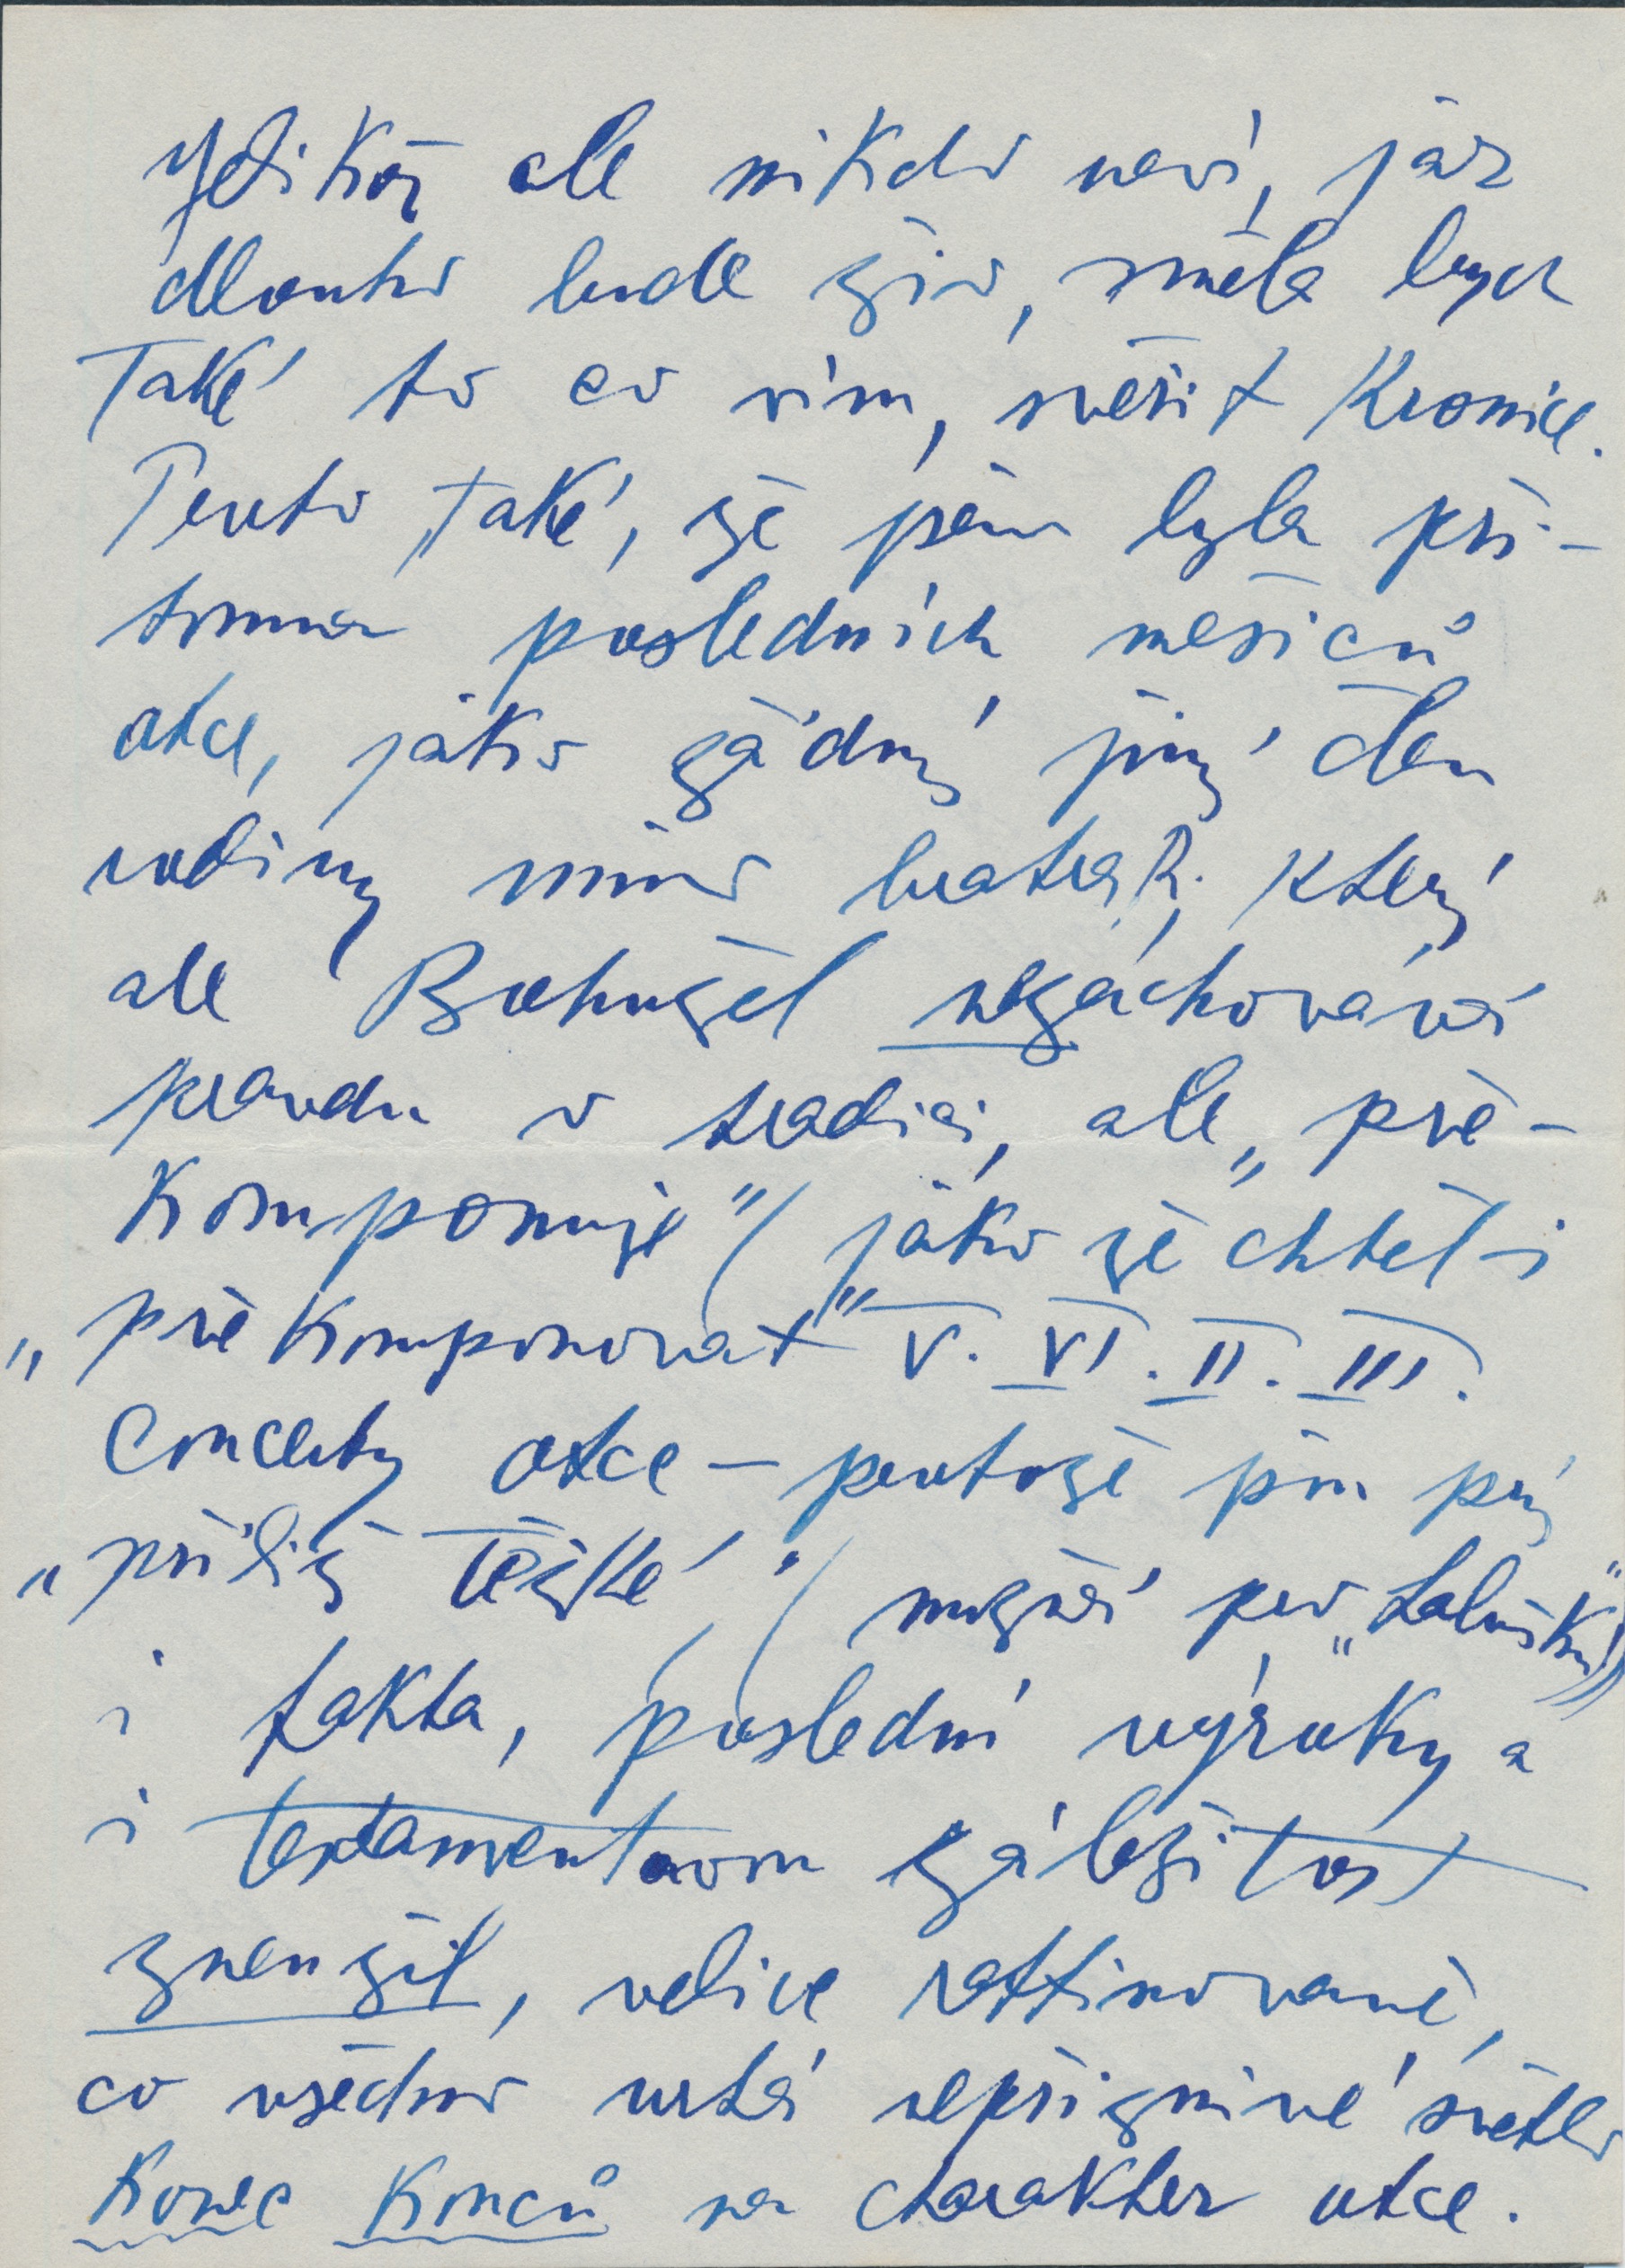 Jelikož ale nikdo neví, jak
dlouho bude živ, směla bych
také to co vím, svěřit Kronice.
Proto také, že jsem byla pří-
tomna posledních měsíců
otce, jako žádný jiný člen
rodiny mimo bratra R. který
ale Bohužel nezachovává
pravdu v tradici, ale „pře-
komponuje" (jako že chtěl i
„překomponovat" V. VI. II. III.
Concerty otce – protože jsou prý
„příliš těžké", (možná pro „Lalušku"))
i fakta, poslední výroky a
i testamentarom záležitost
zneužil, velice raffinovaně,
co všechno vrhá nepříznivé světlo
Konec Konců na charakter otce.